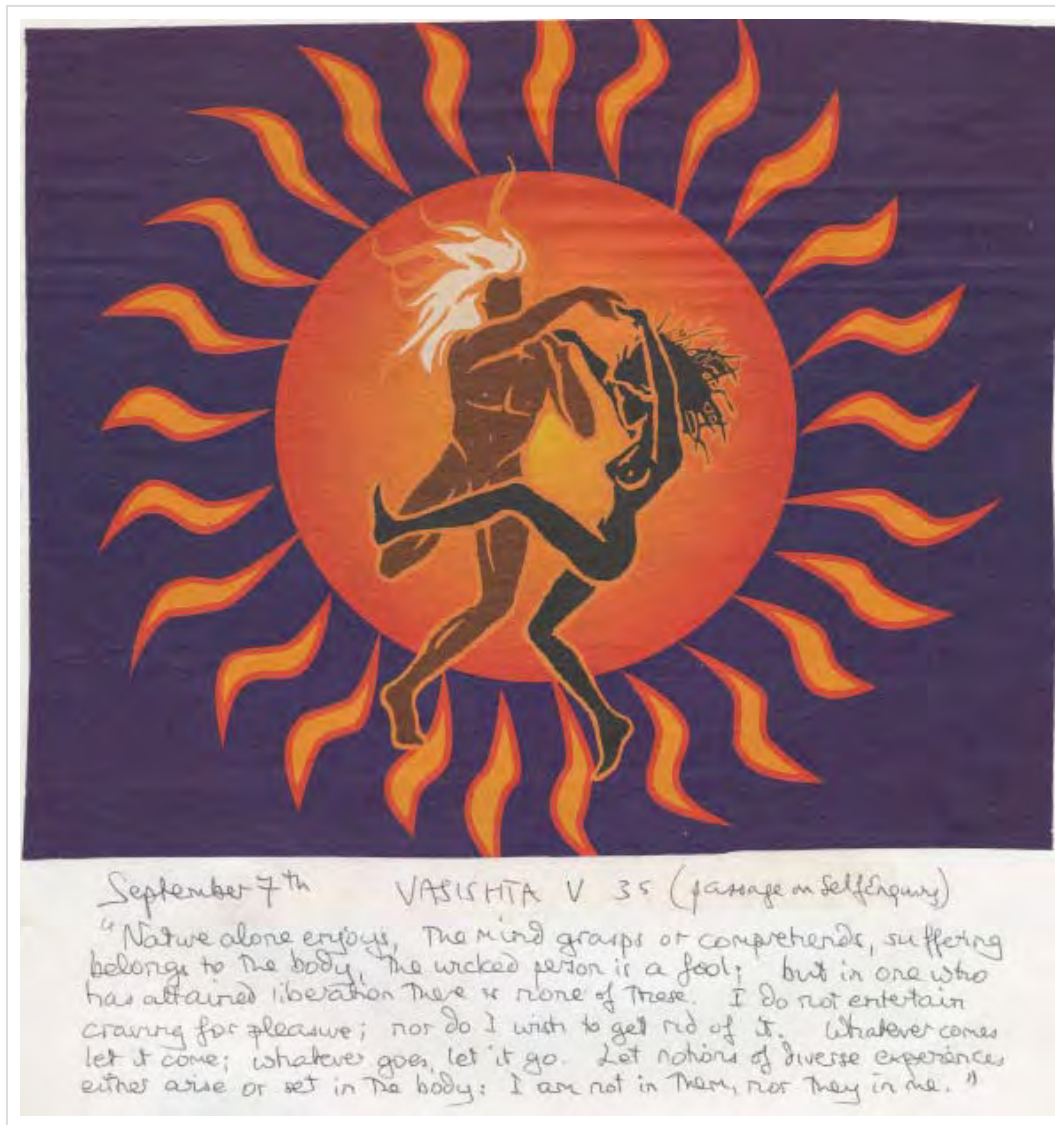 September 7th VASISHTA V 35 (passage on Self Enquiry)
"Nature alone enjoys, The mind grasps or comprehends, suffering
belongs to the body, The wicked person is a fool; but in one who
has attained liberation There is none of These. I do not entertain
craving for pleasure; nor do I wish to get rid of it. Whatever comes
let it come; whatever goes, let it go. Let notions of diverse experiences
either arise or set in The body: I am not in Them, nor They in me."